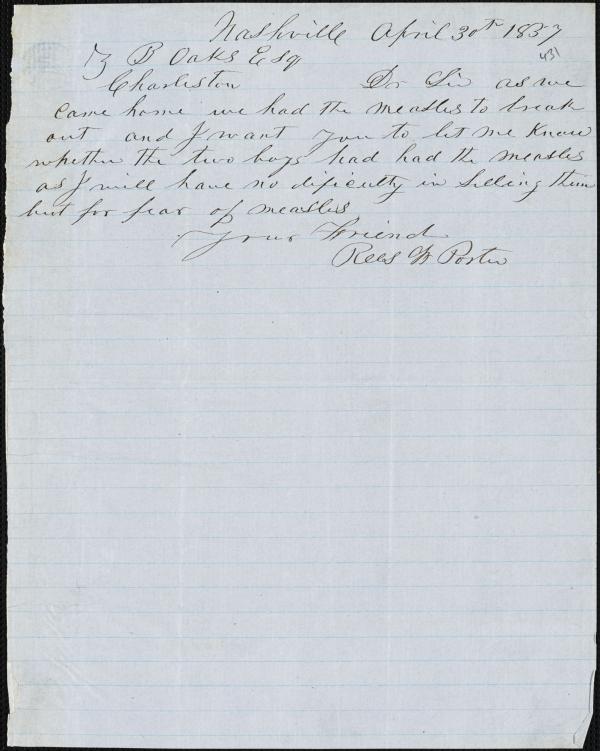 Nashville April 30th 1857
431
Z B Oaks Esq
Charleston Dr Sir as we
came home we had the measles to break
out and I want you to let me know
whether the two boys had had the measles
as I will have no dificulty in selling them
but for fear of measles
Your Friend
Rees W Porter